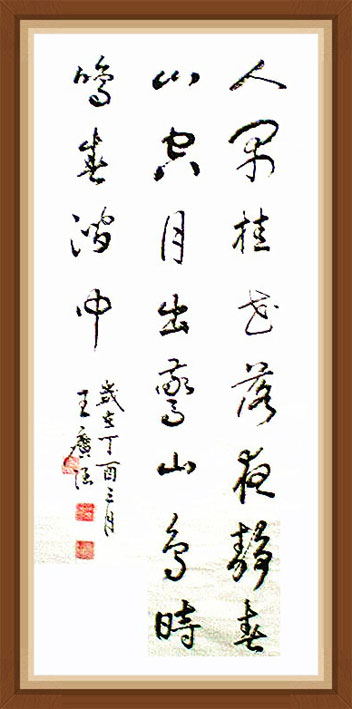 人閒桂花落夜靜春
山空月出驚山鳥時
鳴春澗中
歲在丁酉三月
王廣